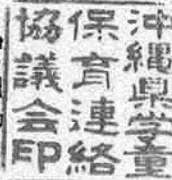 沖縄県学童
保育連絡
協議会印